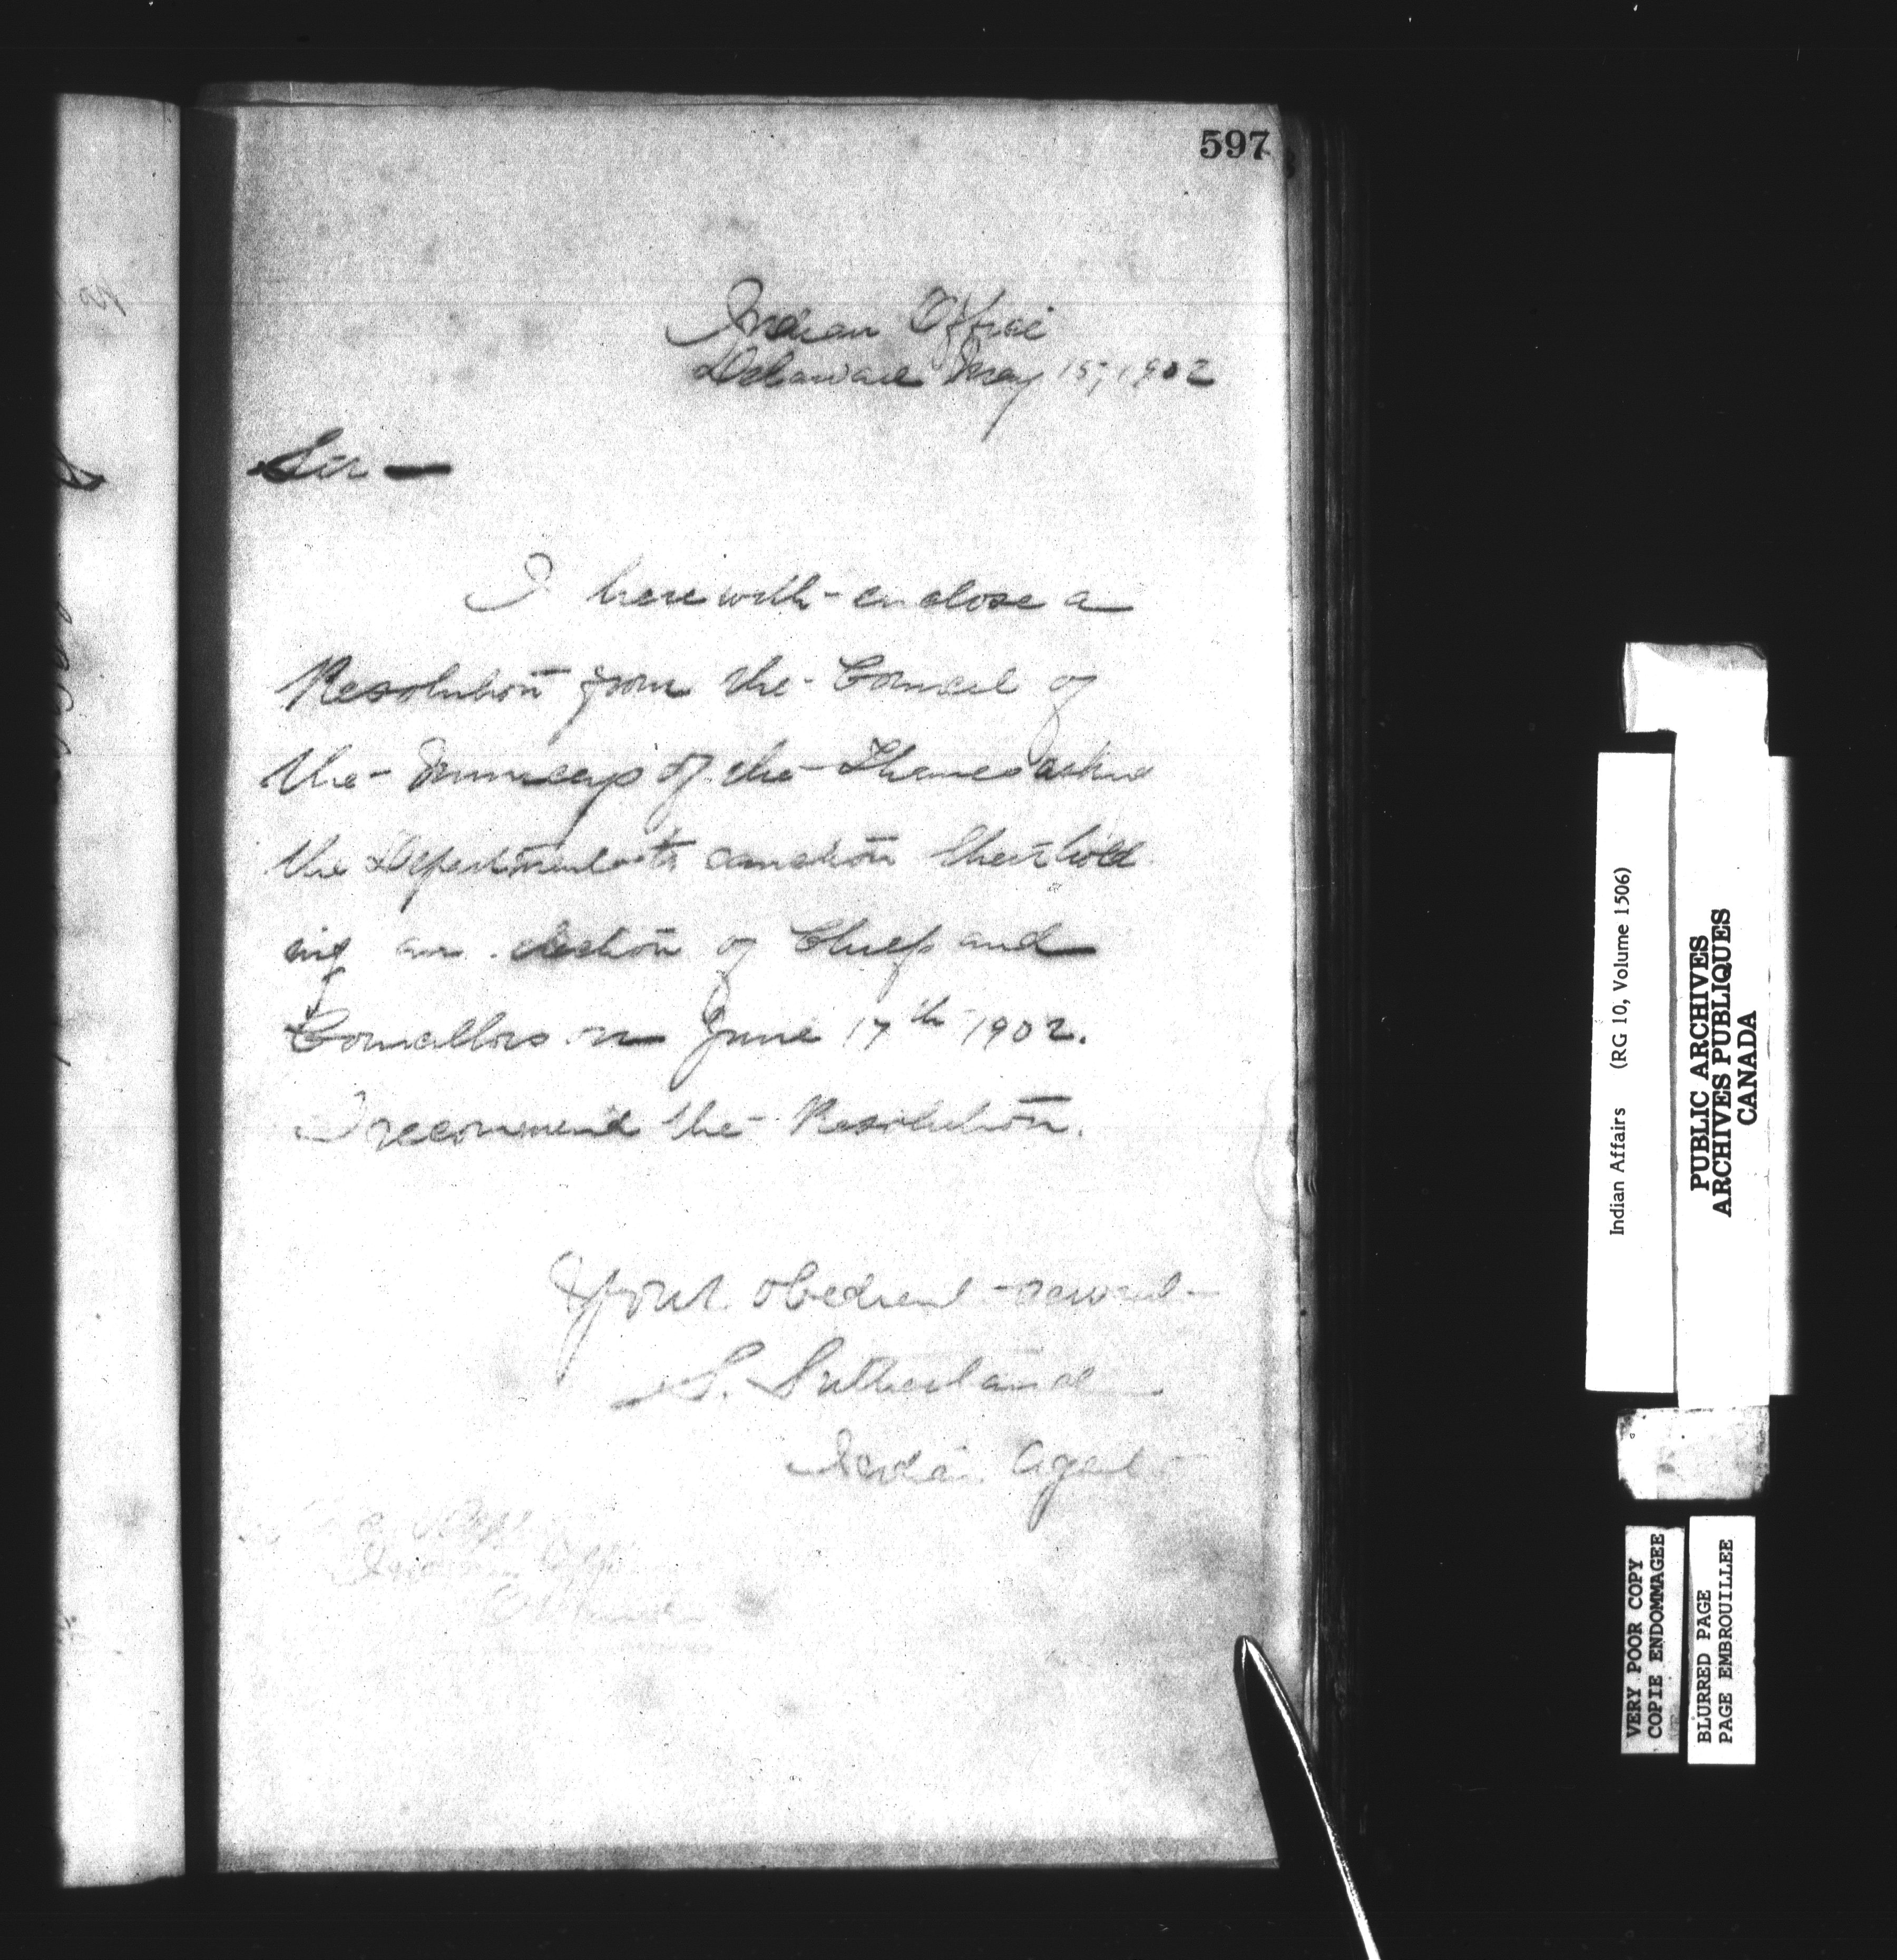 597
Indian Office
Delaware May 15, 1902
Sir —
I herewith enclose a
Resolution from the Council of
the Munceys of the Thames asking
the Department to sanction their hold
ing an election of Chiefs and
Councillors on June 17th 1902.
I recommend the Resolution.
Your obedient servant
S. Sutherland
Indian Agent
Indian Office
Ottawa
Indian Affairs (RG 10, Volume 1506)
PUBLIC ARCHIVES
ARCHIVES PUBLIQUES
CANADA
VERY POOR COPY
COPIE ENDOMMAGEE
BLURRED PAGE
PAGE EMBROUILLEE